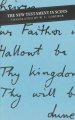 THE NEW TESTAMENT IN SCOTS
TRANSLATED BY W. L. LORIMER
Faither
Hallowt be
Thy Kingdom
Thy will be